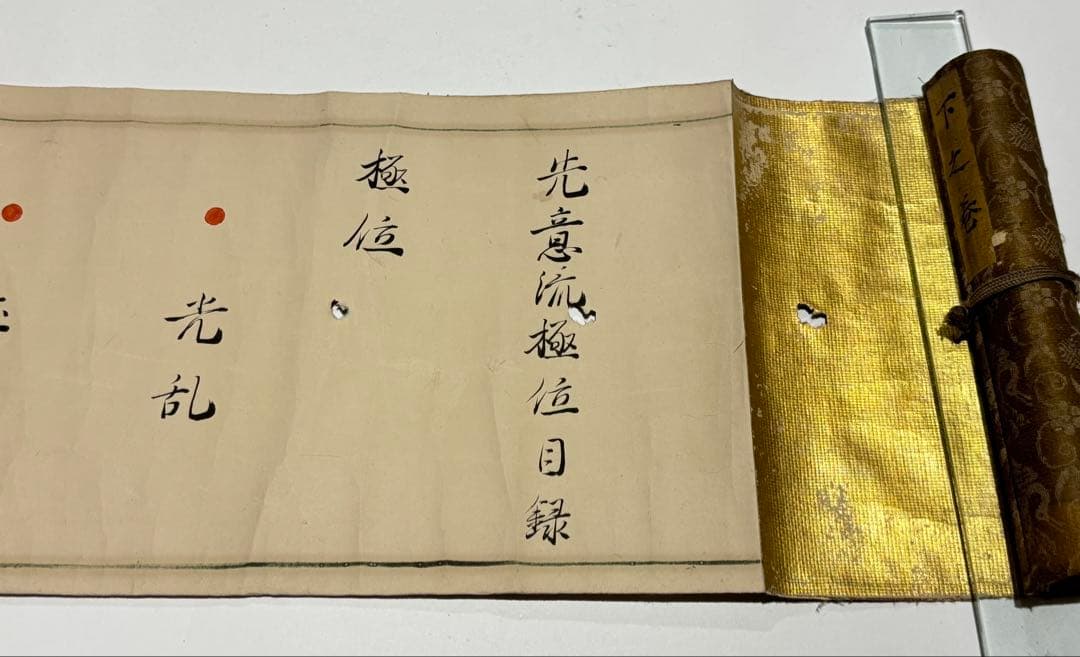 下之巻
先意流極位目録
極位
光乱